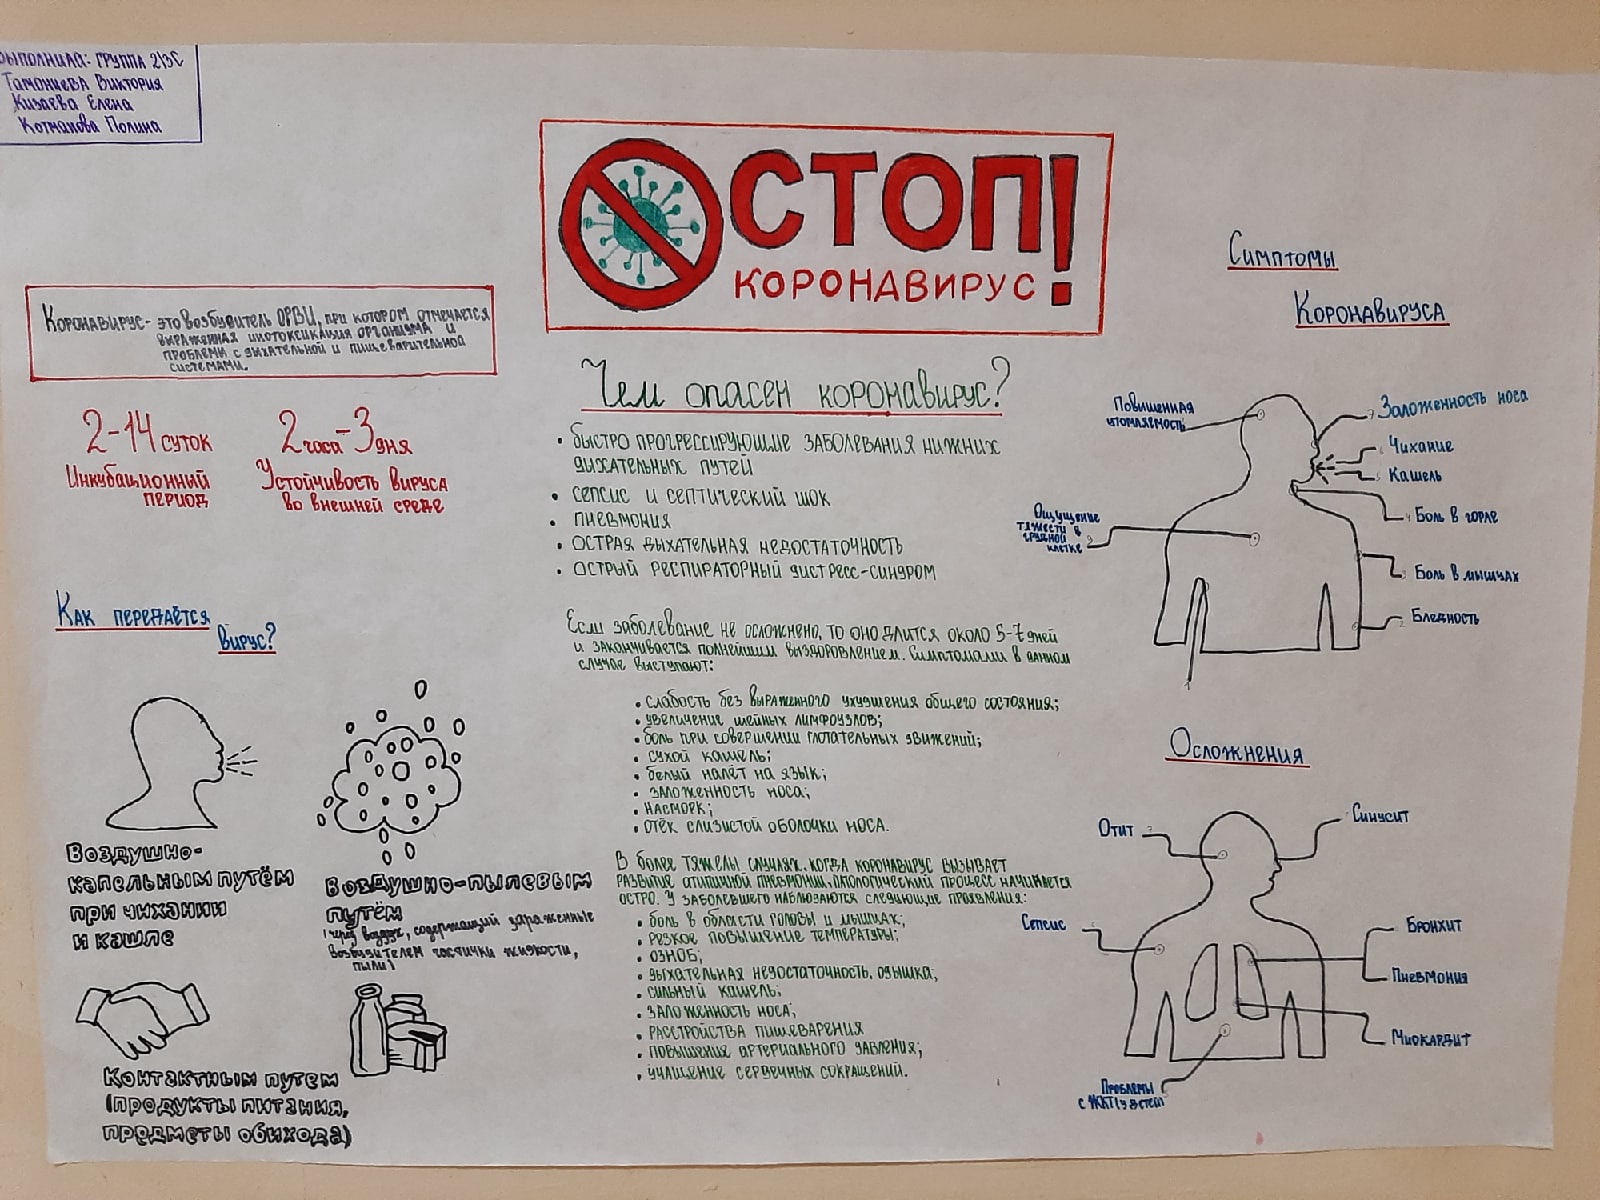 Выполнила: группа 213С
Виктория
Кизаева Елена
Котманова Полина
СТОП!
КОРОНАВИРУС
Коронавирус - это возбудитель ОРВИ, при котором отмечается
выраженная интоксикация организма и
проблемы с дыхательной и пищеварительной
системами.
2-14 суток
Инкубационный
период
2 часа - 3 дня
Устойчивость вируса
во внешней среде
Как передаётся
вирус?
Воздушно-
капельным путём
при чихании
и кашле
Воздушно-пылевым
путём
(через воздух, содержащий зараженные
возбудителем частички жидкости,
пыли)
Контактным путем
(продукты питания,
предметы обихода)
Чем опасен коронавирус?
• быстро прогрессирующие заболевания нижних
дыхательных путей
• сепсис и септический шок
• пневмония
• острая дыхательная недостаточность
• острый респираторный дистресс-синдром
Если заболевание не осложнено, то оно длится около 5-7 дней
и заканчивается полнейшим выздоровлением. Симптомами в данном
случае выступают:
• слабость без выраженного ухудшения общего состояния;
• увеличение шейных лимфоузлов;
• боль при совершении глотательных движений;
• сухой кашель;
• белый налёт на язык;
• заложенность носа;
• насморк;
• отёк слизистой оболочки носа.
В более тяжелы случаях, когда коронавирус вызывает
развитие атипичной пневмонии, патологический процесс начинается
остро. У заболевшего наблюдаются следующие проявления:
• боль в области головы и мышцах;
• резкое повышение температуры;
• озноб;
• дыхательная недостаточность, одышка;
• сильный кашель;
• заложенность носа;
• расстройства пищеварения
• повышение артериального давления;
• учащение сердечных сокращений.
Симптомы
Коронавируса
Повышенная
утомляемость
Заложенность носа
Чихание
Кашель
Боль в горле
Ощущение
тяжести в
грудной
клетке
Боль в мышцах
Бледность
Осложнения
Отит
Синусит
Сепсис
Бронхит
Пневмония
Миокардит
Проблемы
с ЖКТ (у детей)